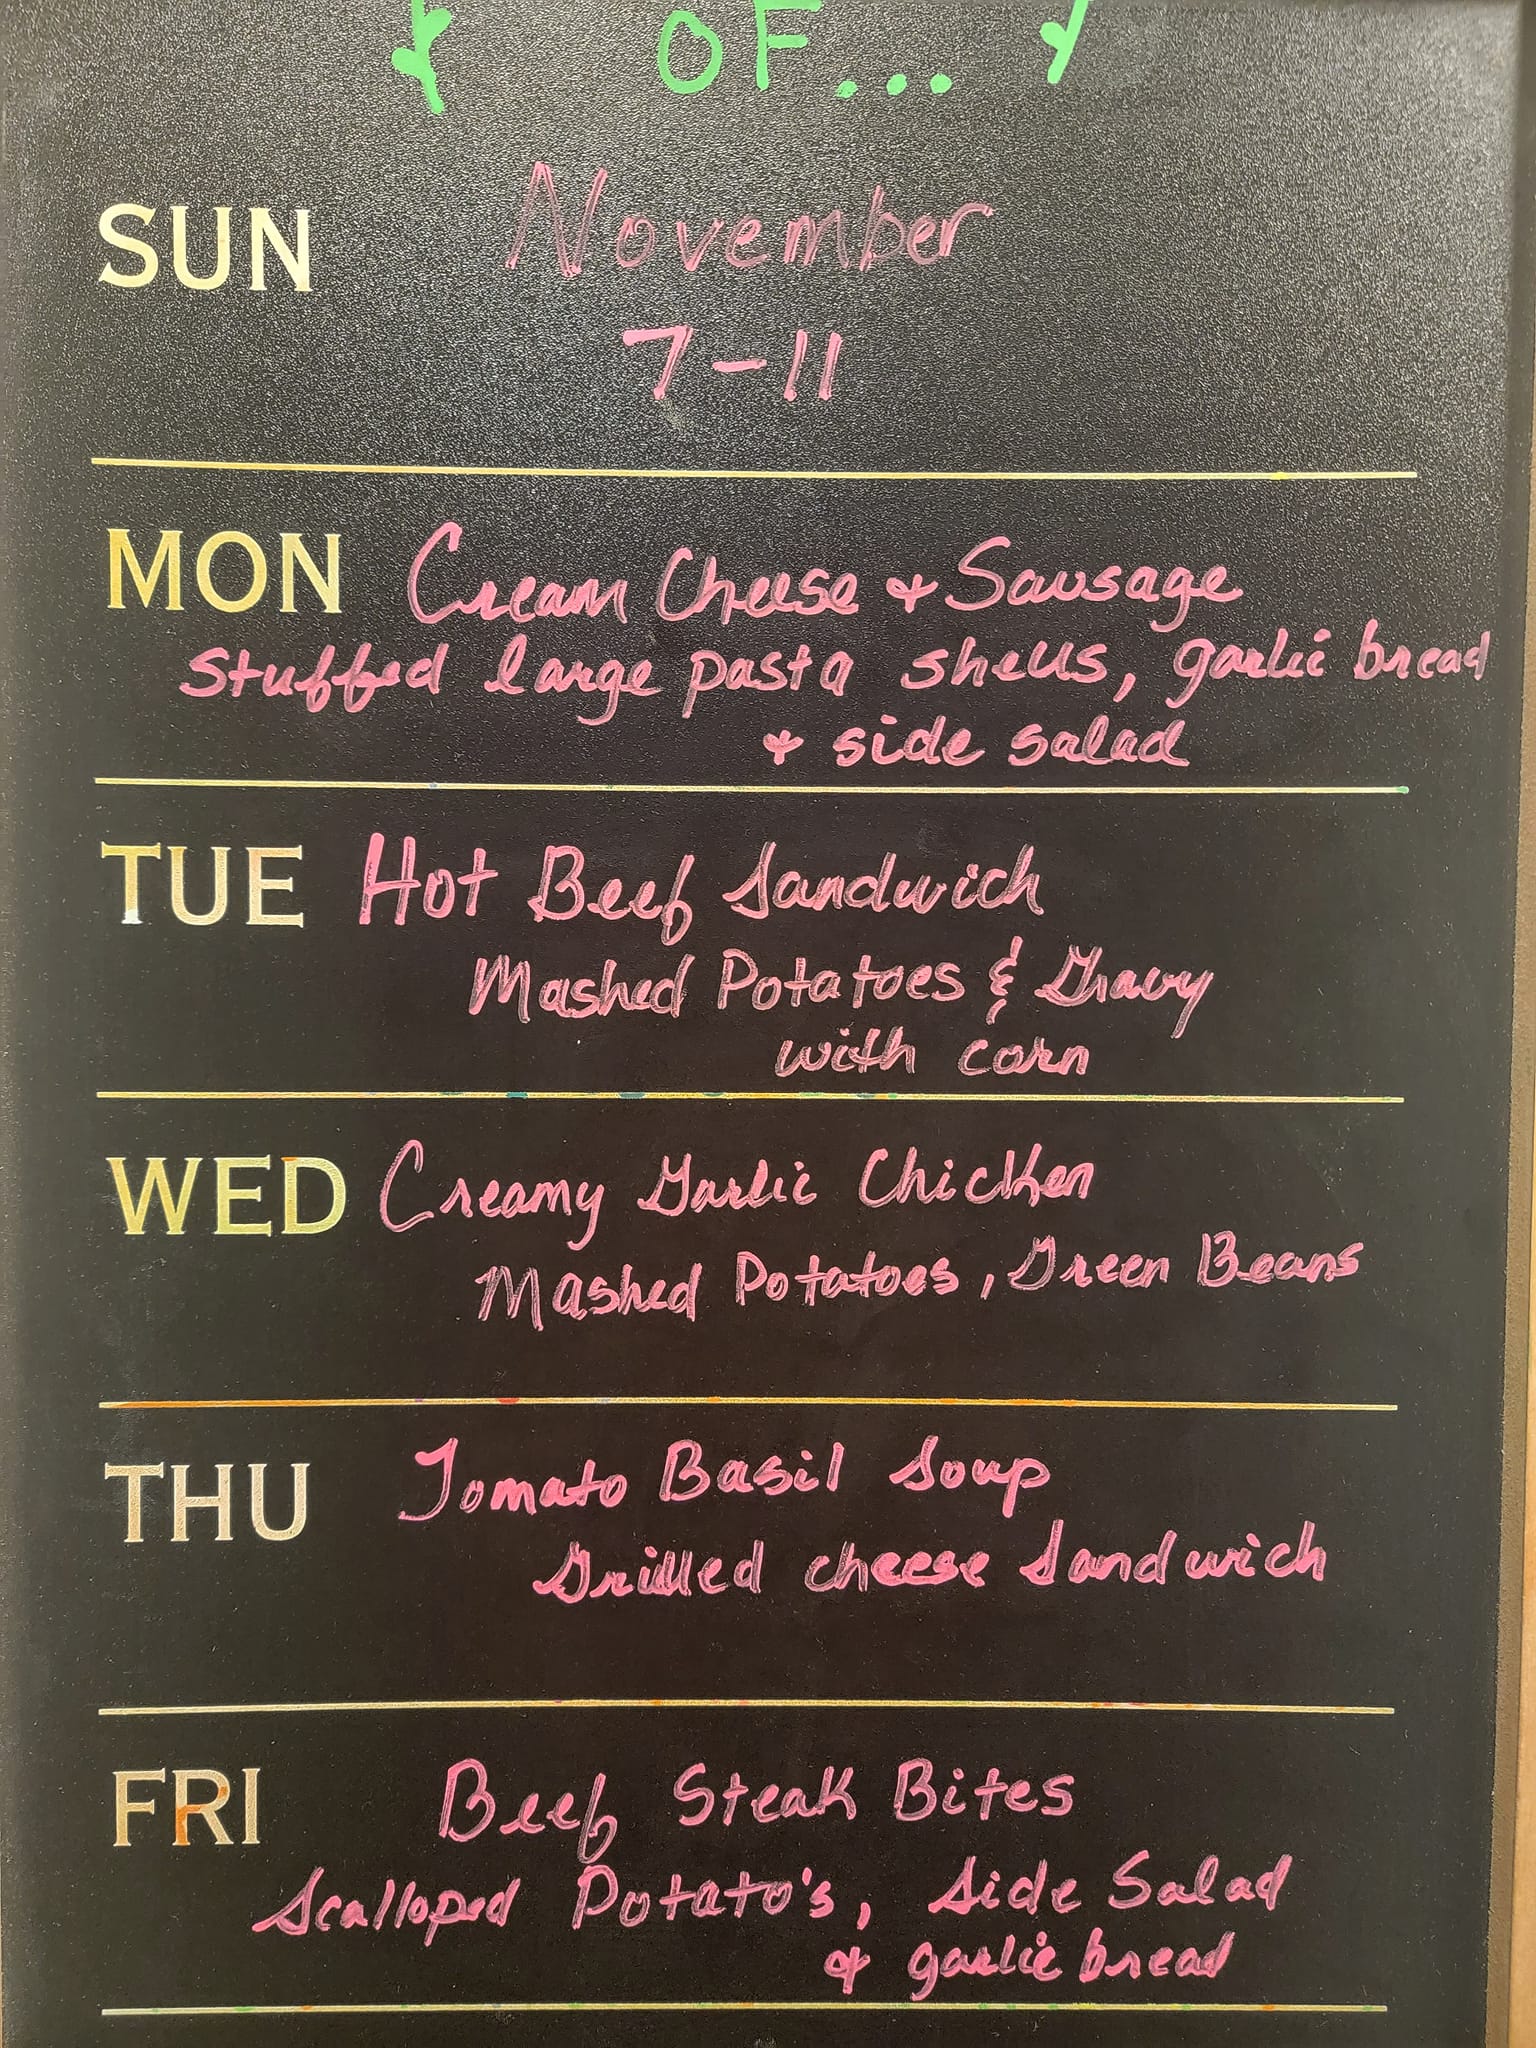 OF...
SUN November
7-11
MON Cream Cheese & Sausage
stuffed large pasta shells, garlic bread
& side salad
TUE Hot Beef Sandwich
Mashed Potatoes & Gravy
with corn
WED Creamy Garlic Chicken
Mashed Potatoes, Green Beans
THU Tomato Basil Soup
Grilled cheese Sandwich
FRI Beef Steak Bites
Scalloped Potato's, Side Salad
& garlic bread